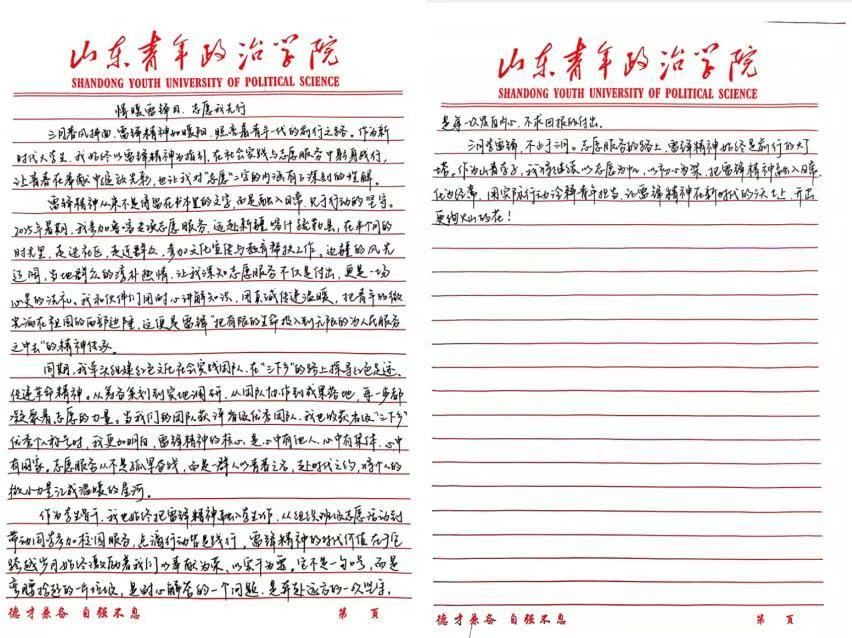 山东青年政治学院
SHANDONG YOUTH UNIVERSITY OF POLITICAL SCIENCE
情暖雷锋月,志愿我先行
三月春风拂面,雷锋精神如暖阳,照亮着青年一代的前行之路。作为新
时代大学生,我始终以雷锋精神为指引,在社会实践与志愿服务中躬身践行,
让青春在奉献中绽放光彩,也让我对"志愿"二字的内涵有了深刻的理解。
雷锋精神从来不是停留在书本里的文字,而是融入日常、见于行动的坚守。
2025年暑期,我参加鲁喀支教志愿服务,远赴新疆喀什疏勒县,在半个月的
时光里,走进社区,走近群众,参加文化宣传与教育帮扶工作。边疆的风光
辽阔,当地群众的淳朴热情,让我深知志愿服务不仅是付出,更是一场
心灵的洗礼。我和伙伴们用耐心讲解知识,用真诚传递温暖,把青年的微
光洒在祖国的西部边陲,这便是雷锋"把有限的生命投入到无限的为人民服务
之中去"的精神传承。
同期,我牵头组建红色文化社会实践团队,在"三下乡"的路上探寻红色足迹、
传递革命精神。从筹备策划到实地调研,从团队协作到成果落地,每一步都
凝聚着志愿的力量。当我们的团队获评省级优秀团队,我也收获省级"三下乡"
优秀个人称号时,我更加明白,雷锋精神的核心,是心中有他人、心中有集体、心中
有国家。志愿服务从不是孤军奋战,而是一群人以青春之名,赴时代之约,将个人的
微小力量汇成温暖的星河。
作为学生骨干,我也始终把雷锋精神融入学生工作,从组织班级志愿活动到
带动同学参加校园服务,点滴行动皆是践行。雷锋精神的时代价值在于它
跨越岁月始终激励着我们以奉献为荣、以实干为要。它不是一句口号,而是
弯腰捡起的一片垃圾,是耐心解答的一个问题,是奔赴远方的一次坚守,
德才兼备 自强不息
第 页
山东青年政治学院
SHANDONG YOUTH UNIVERSITY OF POLITICAL SCIENCE
是每一次发自内心、不求回报的付出。
三月学雷锋,不止于三月。志愿服务的路上,雷锋精神始终是前行的灯
塔。作为山青学子,我将继续以志愿为帆,以初心为桨,把雷锋精神融入日常、
化为经常,用实际行动诠释青年担当,让雷锋精神在新时代的沃土上,开出
更绚烂的花!
德才兼备 自强不息
第 页